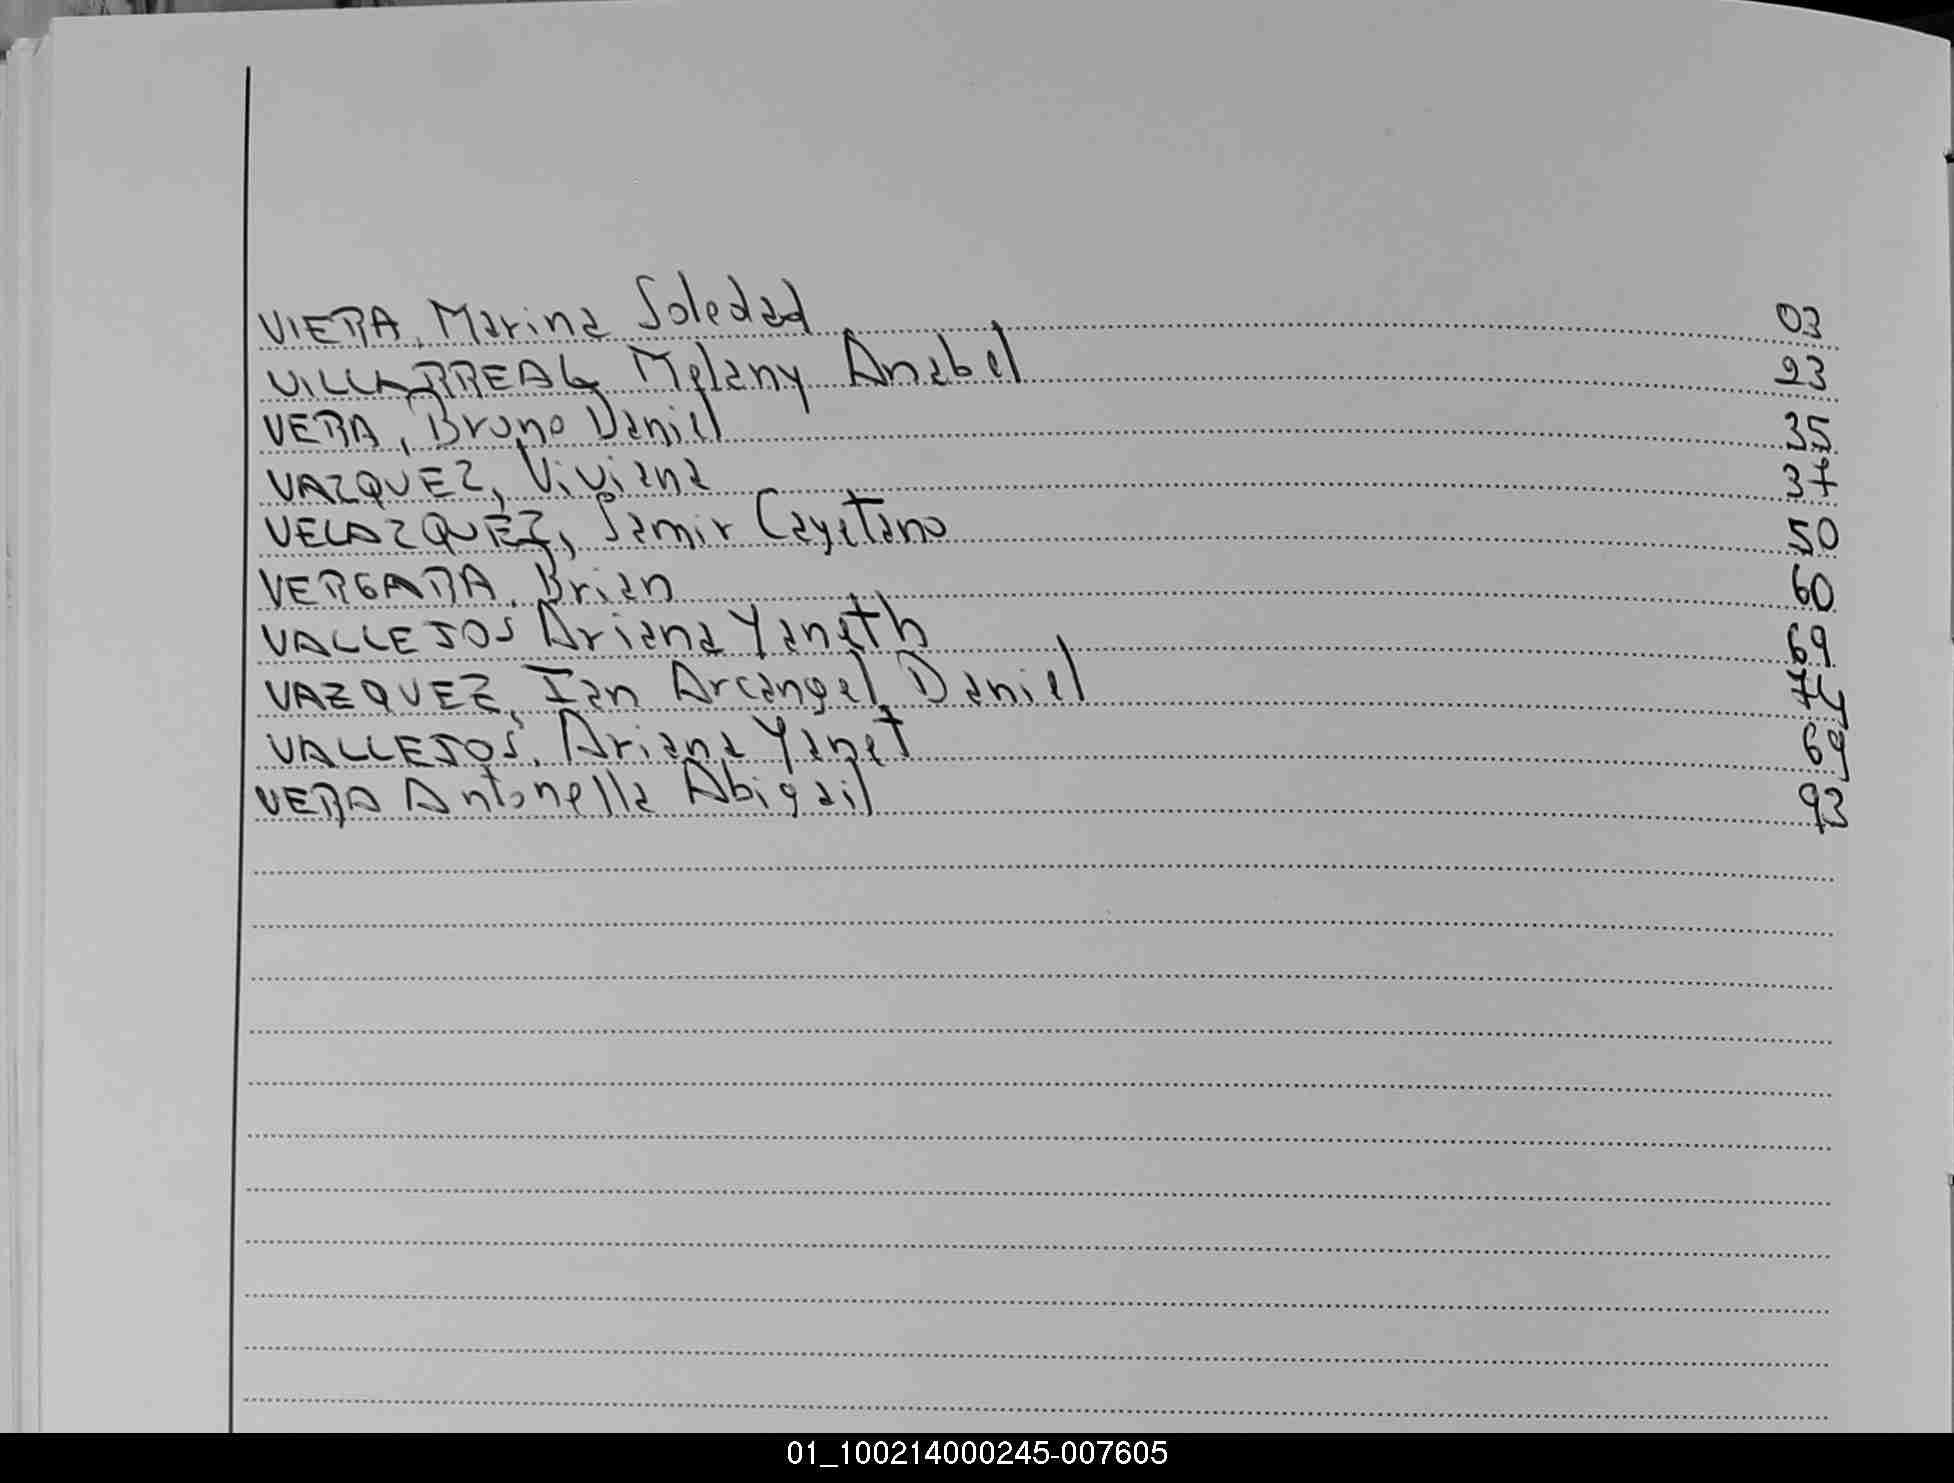 VIERA, Marina Soledad 03
VILLARREAL Melany Anabel 23
VERA, Bruno Daniel 35
VAZQUEZ, Viviana 37
VELAZQUEZ, Samir Cayetano 50
VERGARA, Brian 60
VALLEJOS Ariana Yaneth 69
VAZQUEZ, Ian Arcangel Daniel 75
VALLEJOS, Ariana Yanet 69
VERA Antonella Abigail 93
01_100214000245-007605